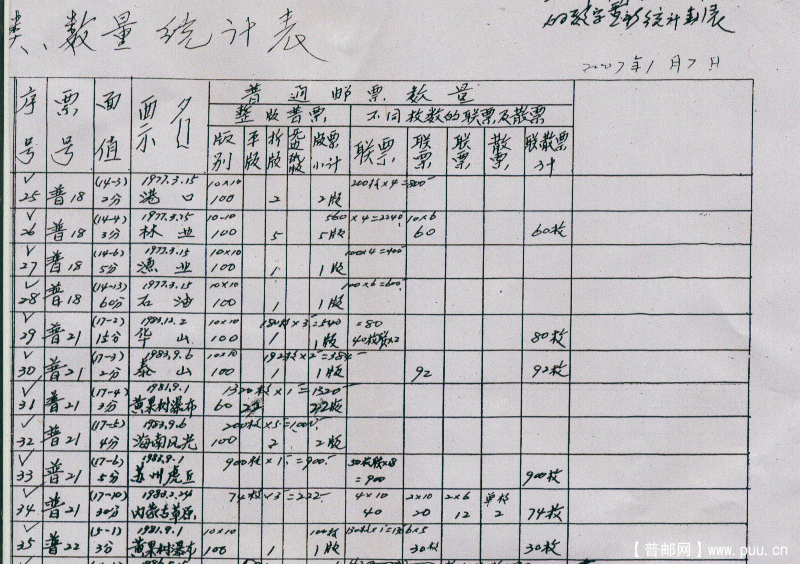 类、数量统计表
统计
2007年1月7日
序号 票号 面值 面示 名 普通邮票数量
整版普票 不同枚数的联票及散票
版别 平版 折版 版票小计 联票 联票 联票 散票 联散票
25 普18 (14-3) 2分 1977.3.15 港口 10×10 100 2 2版 200枚×4=800
26 普18 (14-4) 3分 1977.3.15 林业 10-10 100 5 5版 560×4=2240 10×6 60 60枚
27 普18 (14-6) 5分 1977.3.15 渔业 10×10 100 1 1版 100×4=400
28 普18 (14-13) 60分 1977.3.15 石油 10×10 100 1 1版 100×6=600
29 普21 (17-2) 15分 1983.12.2 华山 10×10 100 1 1版 180枚×3=540 =80 80枚
30 普21 (17-3) 2分 1983.9.6 泰山 10×10 100 1 1版 192枚×2=384 92 92枚
31 普21 (17-4) 3分 1981.9.1 黄果树瀑布 60 22 22版 1320枚×1=1320
32 普21 (17-5) 4分 1983.9.6 海南风光 100 2 2版 200枚×5=1000
33 普21 (17-6) 5分 苏州虎丘 900枚×1=900 =900 900枚
34 普21 (17-10) 30分 内蒙古草原 74枚×3=222 4×10 40 2×10 20 2×6 12 单枚 2 74枚
35 普22 (5-1) 3分 1981.9.1 黄果树瀑布 10×10 100 1 1版 100枚 6×5 30枚 30枚
【普邮网】www.puu.cn